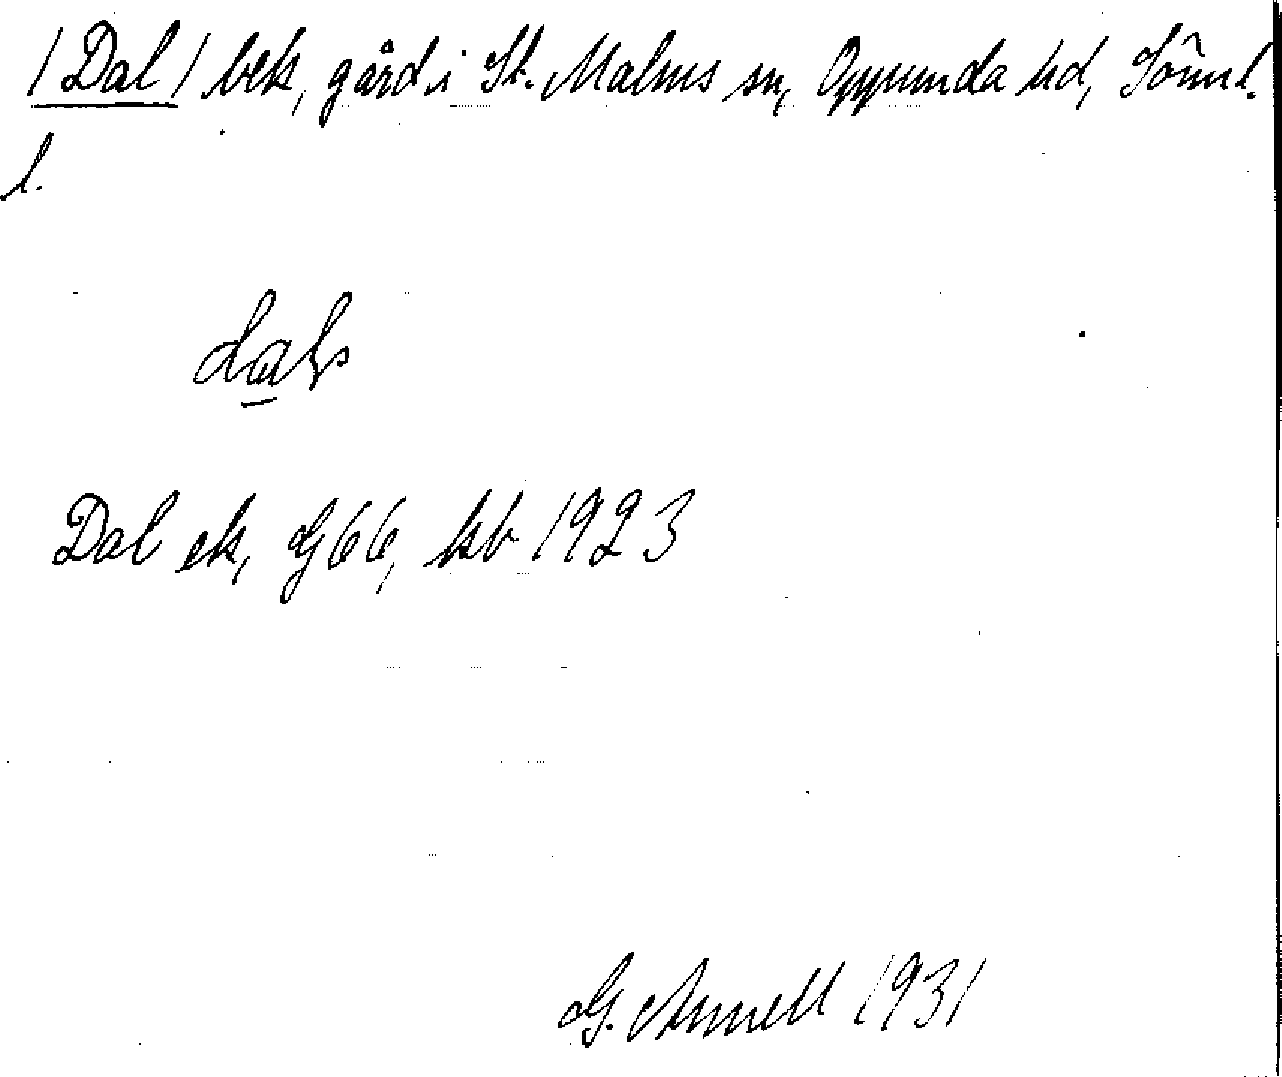 /Dal/ bek, gård i St. Malms sn, Oppunda hd, Söml.
l.
dals
Dal ek, G 66, kb 1923
G. Annell 1931